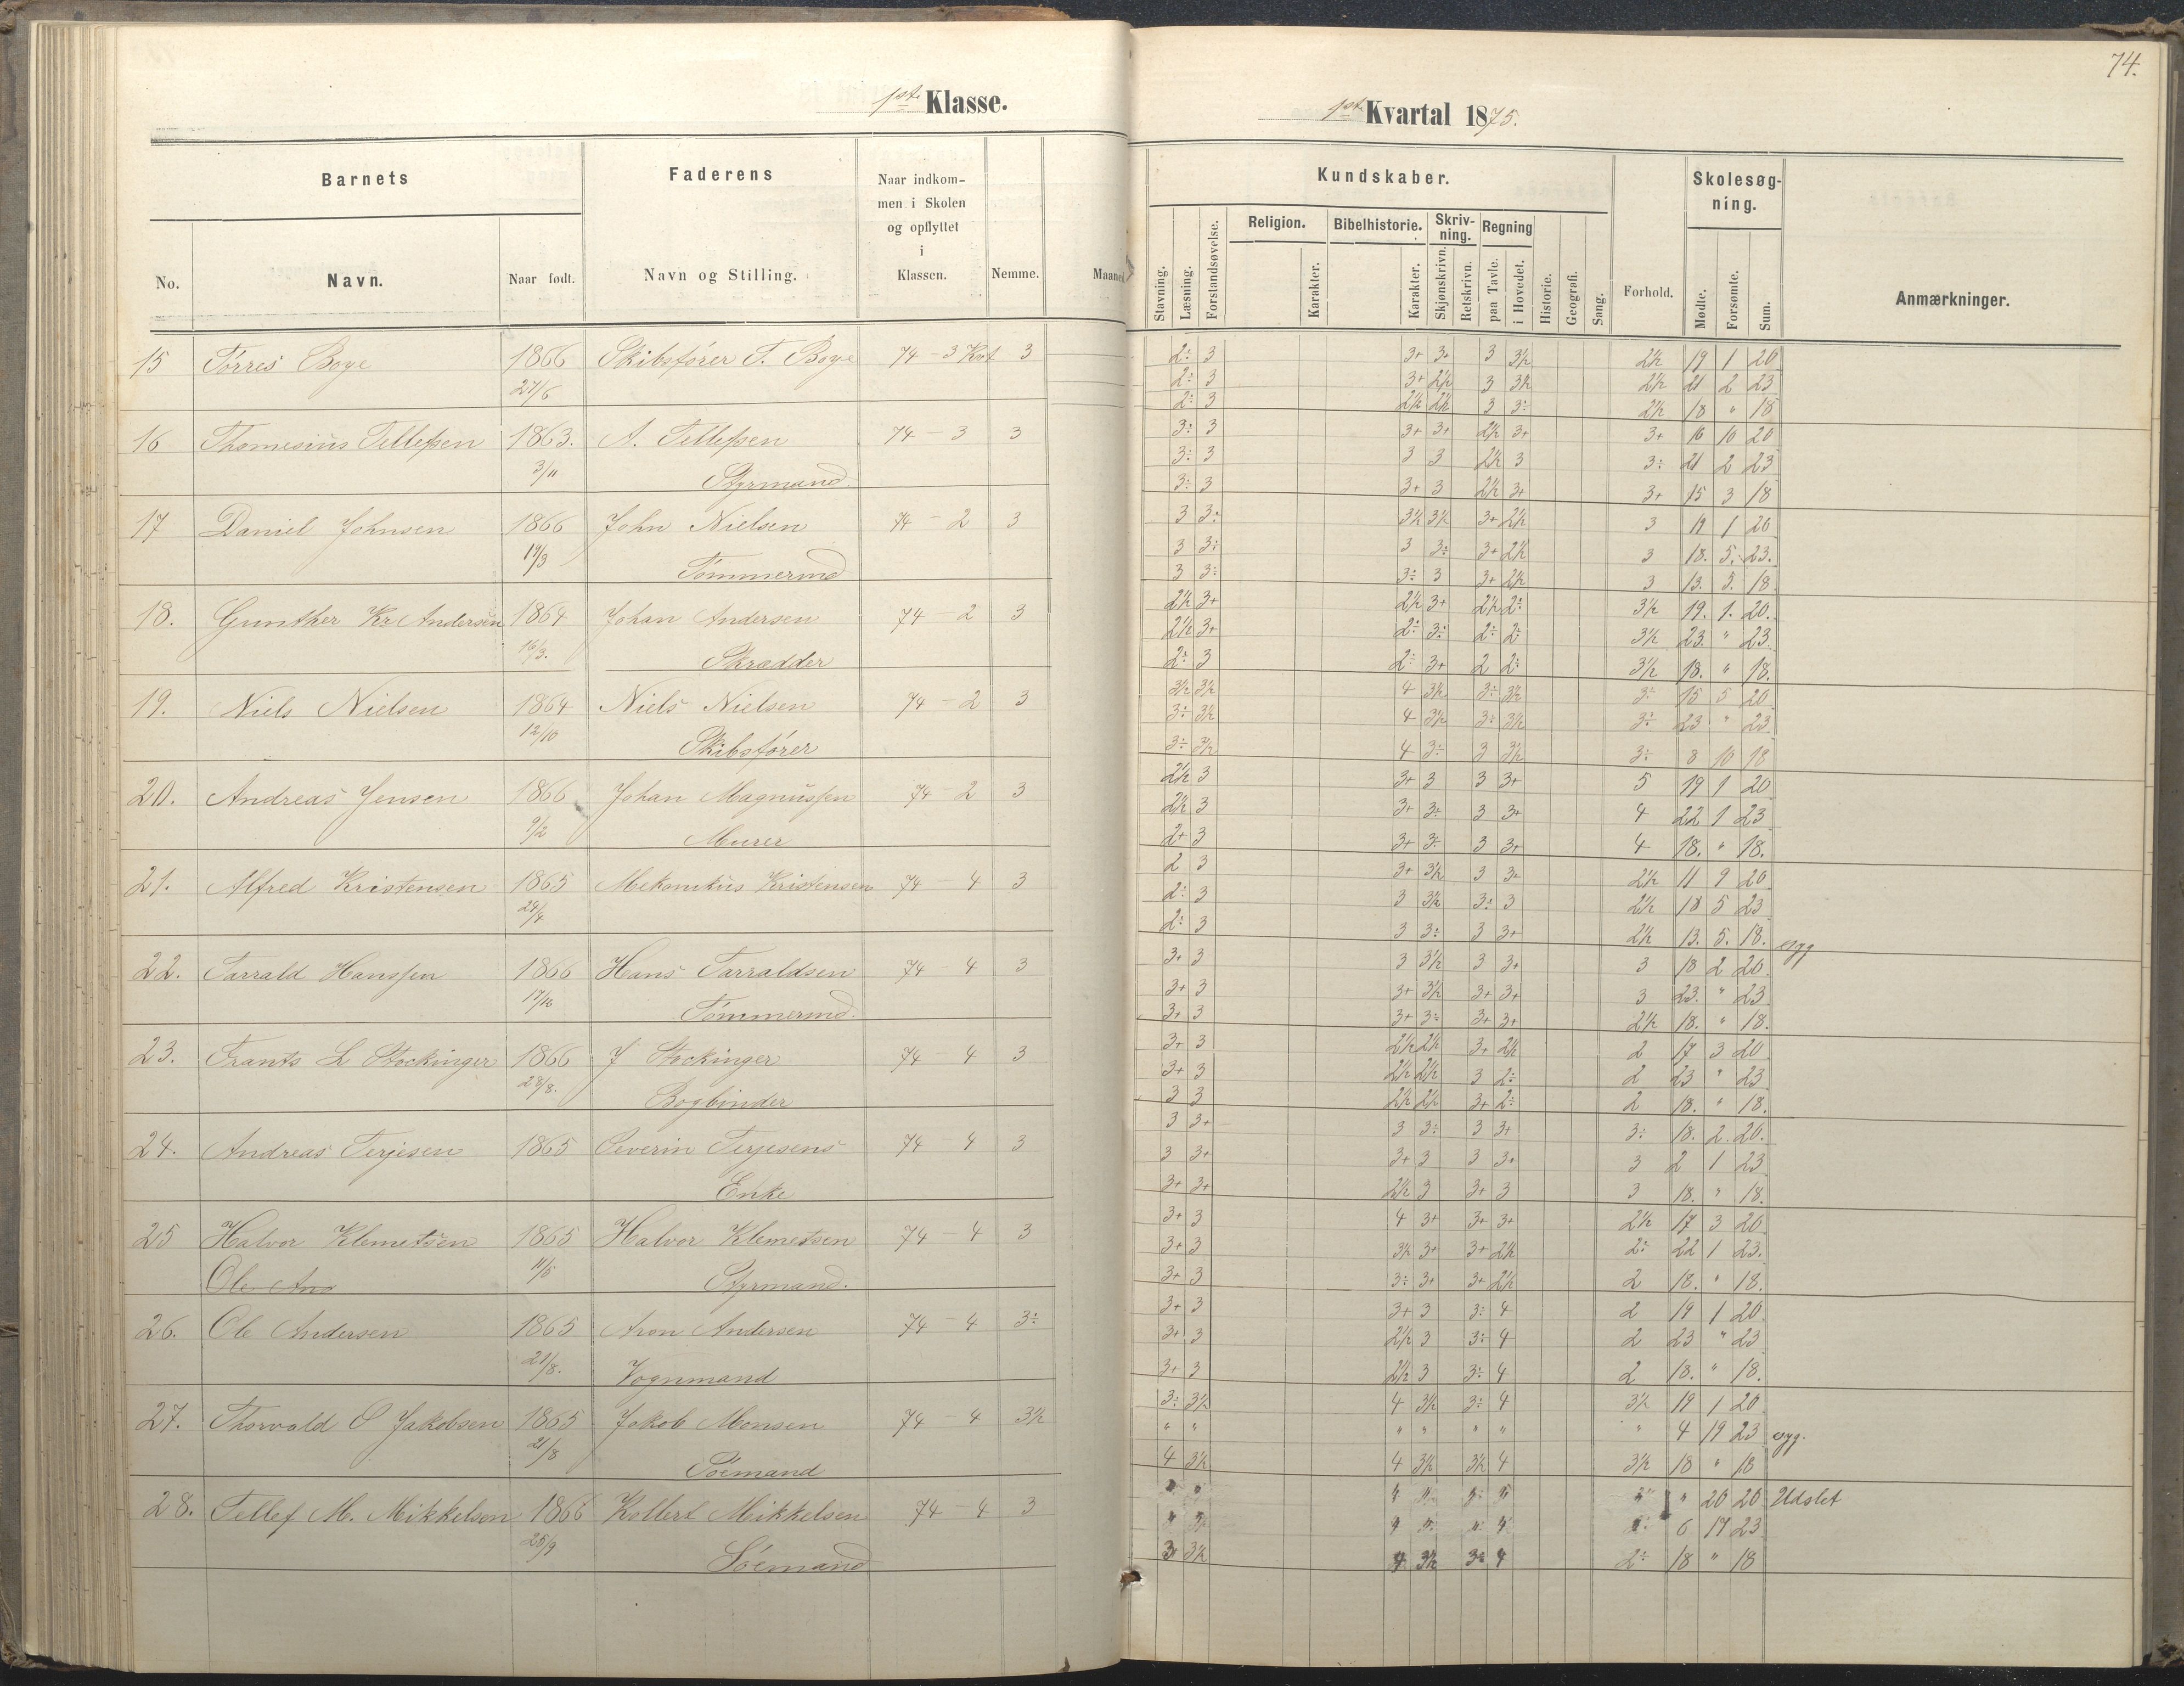 1st Klasse.
Barnets
Faderens
Naar indkom-
men i Skolen
og opflyttet
i
Klassen.
No.
Navn.
Naar født.
Navn og Stilling.
Nemme.
Maaned
15 Törres Boye 1866 Skibsförer T. Boye 74 - 3 Kvt 3
27/6
16 Thomesius Tellefsen 1863. A. Tellefsen 74 - 3 3
3/11 Styrmand.
17 Daniel Johnsen 1866 John Nielsen 74 - 2 3
19/3 Tömmermd
18. Gunther Kr. Andersen 1864 Johan Andersen 74 2 3
16/3. Skrædder
19. Niels Nielsen 1864 Niels Nielsen 74 - 2 3
12/10 Skibsförer
20. Andreas Jensen 1866 Johan Magnussen 74 - 2 3
9/2 Murer
21. Alfred Kristensen 1865 Mekanikus Kristensen 74 - 4 3
24/4
22. Tarrald Hanssen 1866 Hans Tarraldsen 74 4 3
17/10 Tömmermd.
23. Frants L Stockinger 1866 J Stockinger 74 - 4 3
28/8. Bogbinder
24. Andreas Terjesen 1865 Severin Terjesens 74 4 3
Enke
25 Halvor Klemetsen 1865 Halvor Klemetsen 74 - 4 3
Ole And 11/5 Styrmand.
26. Ole Andersen 1865 Aron Andersen 74 - 4 3÷
21/8. Vognmand
27. Thorvald O Jakobsen 1865 Jakob Monsen 74 - 4 3½
21/8 Sömand
28. Tellef M. Mikkelsen 1866 Kollert Mikkelsen 74 - 4 3
25/9 Söemand
74.
1st Kvartal 1875.
Kundskaber.
Skolesøg-
ning.
Religion.
Bibelhistorie.
Skriv-
ning.
Regning
Stavning.
Læsning.
Forstandsøvelse.
Karakter.
Karakter.
Skjønskrivn.
Retskrivn.
paa Tavle.
i Hovedet.
Historie.
Geografi.
Sang.
Forhold.
Mødte.
Forsømte.
Sum.
Anmærkninger.
2÷ 3 3+ 3+ 3 3½ 2½ 19 1 20
2÷ 3 3+ 2½ 3 3½ 2½ 21 2 23
2÷ 3 2½ 2½ 3 3÷ 2½ 18 " 18
3÷ 3 3+ 3+ 2½ 3+ 3+ 10 10 20
3÷ 3 3 3 2½ 3 3÷ 21 2 23
3÷ 3 3+ 3 2½ 3+ 3+ 15 3 18
3 3÷ 3½ 3½ 3+ 2½ 3 19 1 20
3 3÷ 3 3÷ 3+ 2½ 3 18. 5. 23.
3 3÷ 3÷ 3 3+ 2½ 3 13. 5. 18.
2½ 3+ 2½ 3+ 2½ 2÷ 3½ 19. 1. 20.
2½ 3+ 2÷ 3÷ 2÷ 2÷ 3½ 23. " 23.
2÷ 3 2÷ 3+ 2 2÷ 3½ 18. " 18.
3½ 3½ 4 3½ 3÷ 3½ 3÷ 15 5 20
3÷ 3½ 4 3½ 3÷ 3½ 3÷ 23 " 23
3÷ 3½ 4 3÷ 3 3½ 3÷ 8 10 18
2½ 3 3+ 3 3 3+ 5 19 1 20
2½ 3 3+ 3÷ 3 3+ 4 22 1 23
2+ 3 3+ 3÷ 3 3+ 4 18. " 18.
2 3 3+ 3½ 3 3+ 2½ 11 9 20
2÷ 3 3 3½ 3÷ 3 2½ 18 5 23
2÷ 3 3 3÷ 3 3+ 2½ 13. 5. 18. syg
3+ 3 3 3½ 3 3+ 3 18 2 20
3+ 3 3+ 3½ 3+ 3+ 3 23. " 23
3+ 3 3+ 3÷ 3+ 3+ 2½ 18. " 18.
3+ 3 2½ 2½ 3+ 2½ 2 17 3 20
3+ 3 2½ 2½ 3 2÷ 2 23 " 23
3 3 2½ 2½ 3+ 2÷ 2 18. " 18.
3 3+ 3 3÷ 3 3+ 3÷ 18. 2. 20.
3 3+ 3+ 3 3 3+ 3 2 1 23
3+ 3+ 2½ 3 3+ 3 3 18. " 18.
3+ 3 4 3+ 3+ 3+ 2½ 17 3 20
3+ 3 3½ 3+ 3+ 2½ 2÷ 22 1 23.
3+ 3 3÷ 3+ 3+ 2½ 2 18. " 18.
3+ 3 3+ 3 3÷ 4 2 19 1 20
3+ 3 2½ 3 3÷ 4 2 23 " 23
3+ 3 2½ 3 3÷ 4 2 18. " 18.
3÷ 3½ 4 3½ 3÷ 4 3½ 19 1 20
" " " " " " " 4 19 23 syg.
4 3½ 4 3½ 3½ 4 3½ 18 " 18
" 20 20 Udslet
6 17 23
3 3½ 4 3½ 3÷ 4 2÷ 18 " 18